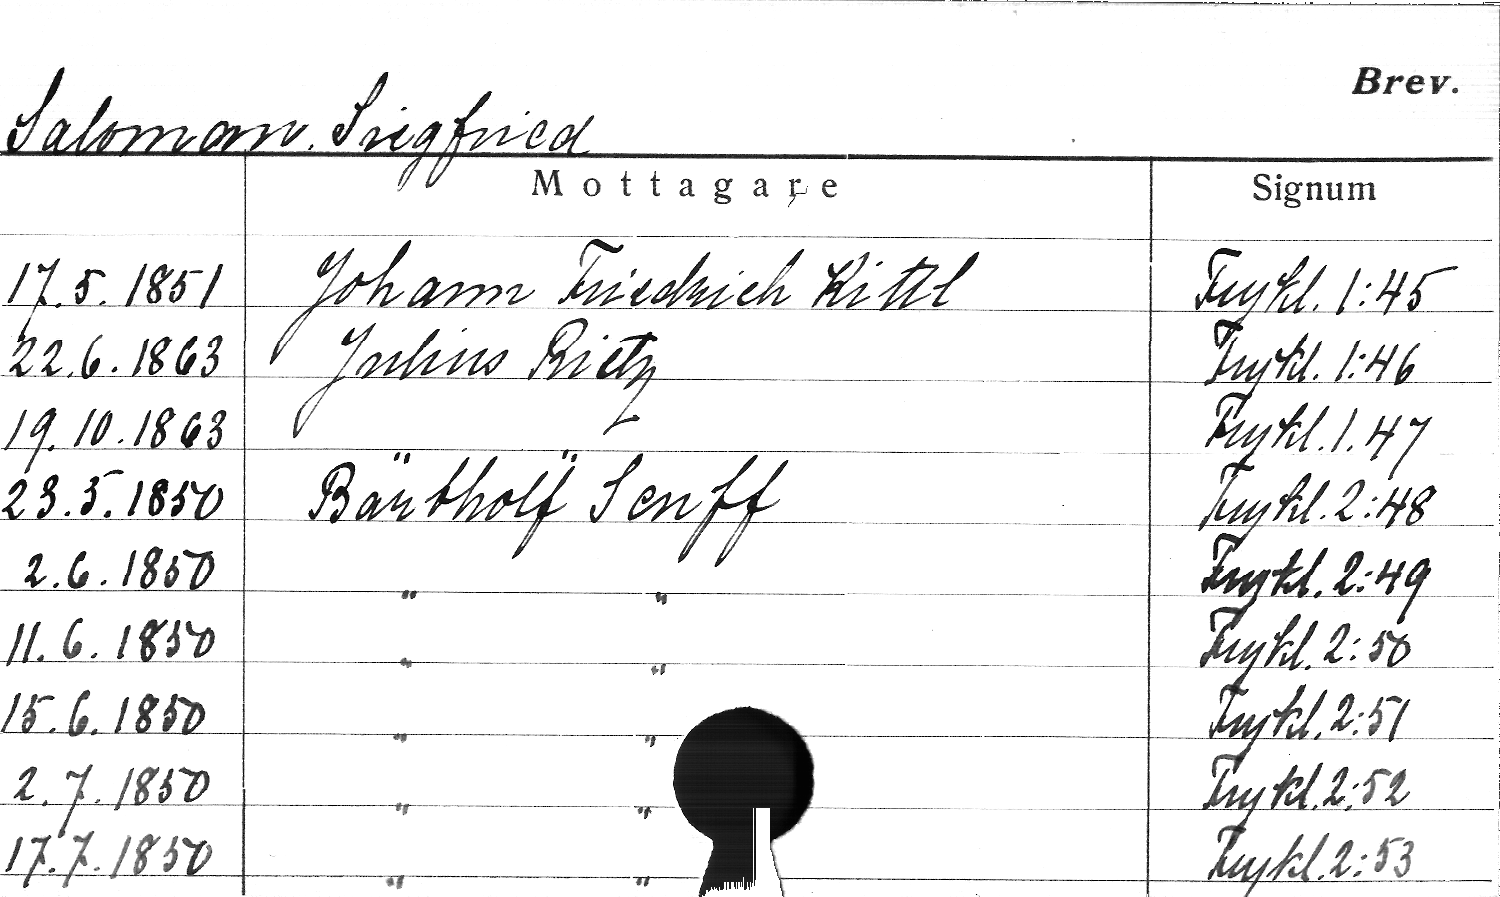 Brev.
Saloman. Siegfried
Mottagare Signum
17.5.1851 Johann Friedrich Kittl Frykl. 1:45
22.6.1863 Julius Rietz Frykl. 1:46
19.10.1863 Frykl. 1.47
23.5.1850 Bartholf Senff Frykl. 2:48
2.6.1850 " " Frykl. 2:49
11.6.1850 " " Frykl. 2:50
15.6.1850 " " Frykl. 2:51
2.7.1850 " " Frykl. 2:52
17.7.1850 " " Frykl. 2:53